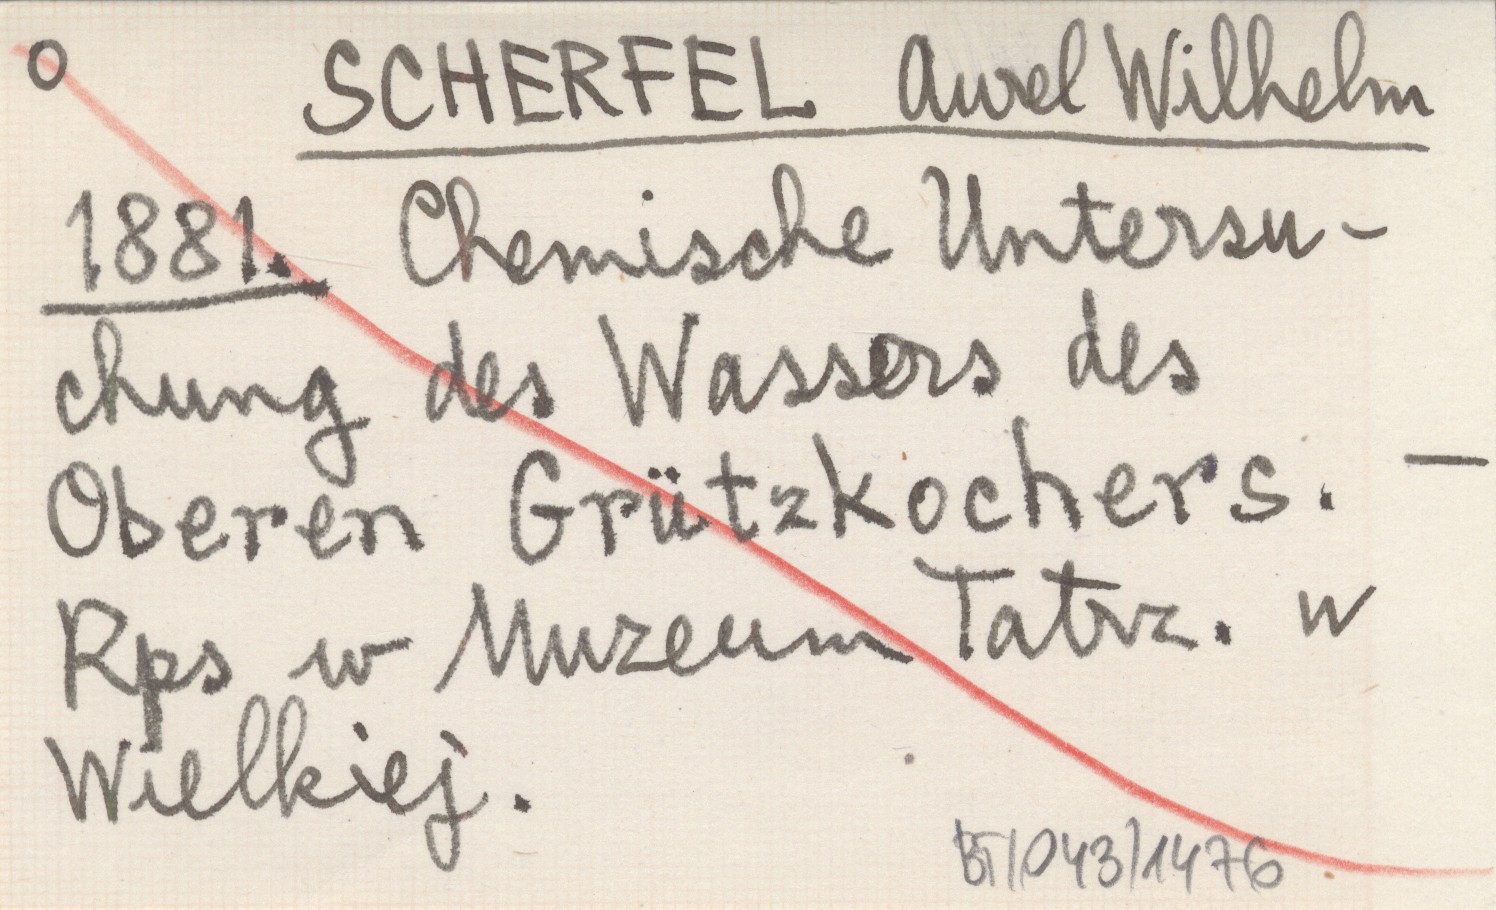 O SCHERFEL Aurel Wilhelm
1881. Chemische Untersu-
chung des Wassers des
Oberen Grützkochers. —
Rps w Muzeum Tatrz. w
Wielkiej.
BT/043/1476